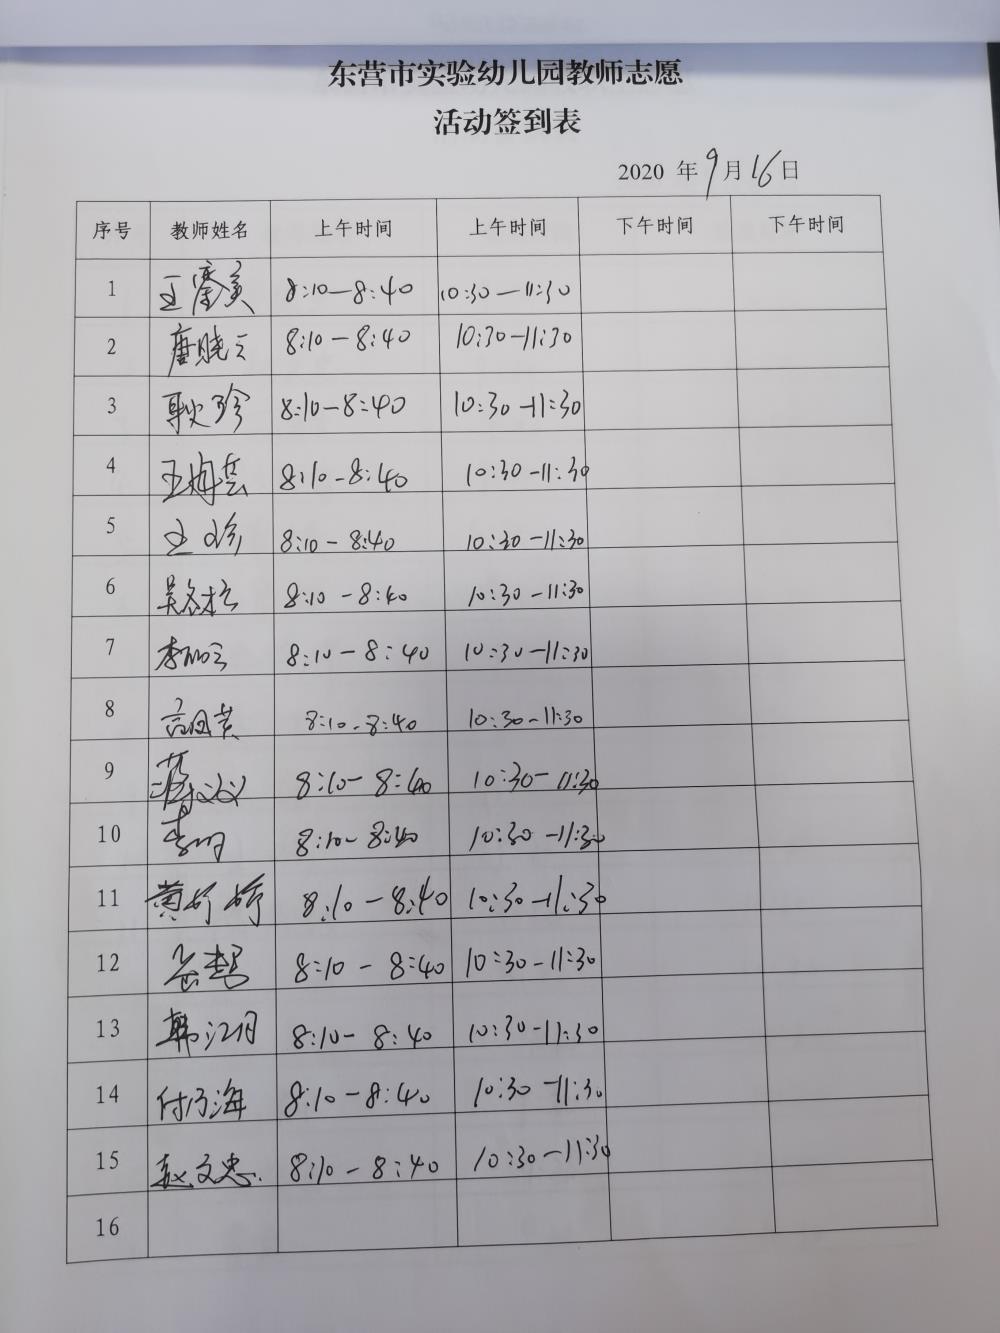 东营市实验幼儿园教师志愿
活动签到表
2020 年 9月 16日
序号 教师姓名 上午时间 上午时间 下午时间 下午时间
1 8:10—8:40 10:30—11:30
2 唐晓云 8:10—8:40 10:30—11:30
3 耿珍 8:10—8:40 10:30—11:30
4 8:10-8:40 10:30-11:30
5 王珍 8:10-8:40 10:30-11:30
6 8:10-8:40 10:30-11:30
7 李丽云 8:10-8:40 10:30-11:30
8 8:10-8:40 10:30-11:30
9 8:10-8:40 10:30-11:30
10 李明 8:10-8:40 10:30-11:30
11 黄婷婷 8:10-8:40 10:30-11:30
12 8:10-8:40 10:30-11:30
13 韩江月 8:10-8:40 10:30-11:30
14 付乃海 8:10-8:40 10:30-11:30
15 赵文忠 8:10-8:40 10:30-11:30
16